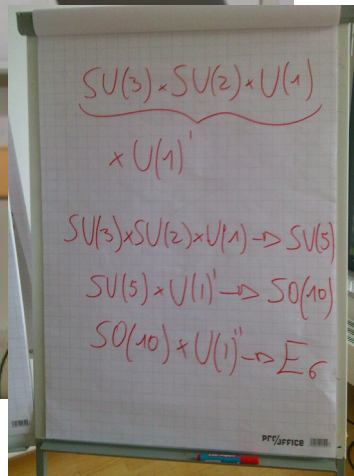 SU(3) × SU(2) × U(1)
× U(1)'
SU(3)×SU(2)×U(1) → SU(5)
SU(5) × U(1)' → SO(10)
SO(10) × U(1)'' → E₆
pro/office